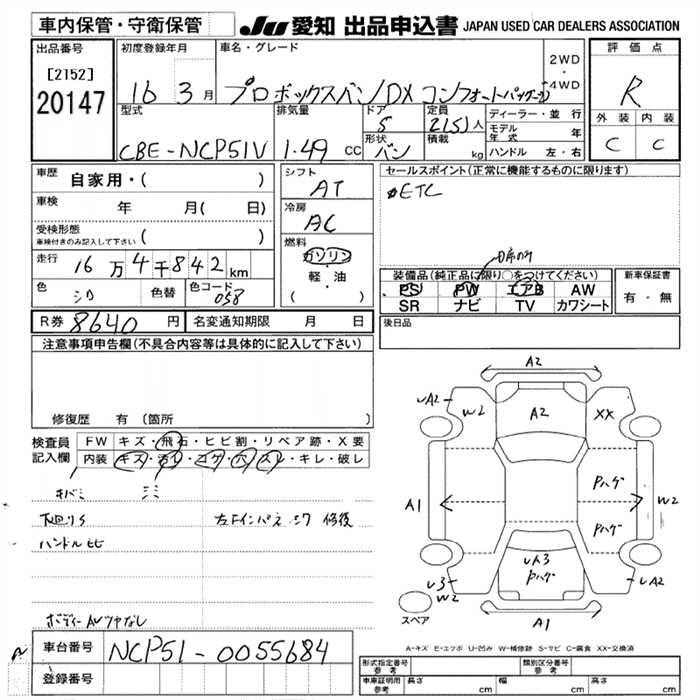 車内保管・守衛保管
JU 愛知 出品申込書 JAPAN USED CAR DEALERS ASSOCIATION
出品番号
[2152]
20147
初度登録年月
16 3 月
車名・グレード
プロボックスバン/DX コンフォートパッケージ
2WD
・
4WD
評価点
R
外装 内装
C C
型式
CBE-NCP51V
排気量
1.49 CC
ドア
5
形状
バン
定員
2(5)人
積載
kg
ディーラー・並行
モデル年式 年
ハンドル 左・右
車歴
自家用・( )
車検 年 月( 日)
受検形態
車検付きのみ記入して下さい ( )
走行 16万4千842km
色 シロ 色替 色コード 058
シフト
AT
冷房
AC
燃料
ガソリン
・
軽・油
( )
セールスポイント(正常に機能するものに限ります)
ETC
装備品(純正品に限り○をつけてください)
PS PW エアB AW
SR ナビ TV カワシート
新車保証書
有・無
R券 8640 円 名変通知期限 月 日
後日品
注意事項申告欄(不具合内容等は具体的に記入して下さい)
修復歴 有 (箇所
検査員記入欄
FW キズ・飛石・ヒビ割・リペア跡・X要
内装 キズ・汚レ・コゲ・穴・スレ・キレ・破レ
キバミ シミ
下廻りS
左Fインパネ シワ 修後
ボディー
車台番号 NCP51-0055684
登録番号
A2
UA2
W2
A2
XX
A1
Pハゲ
W2
Pハゲ
UA3
Pハゲ
U3
W2
UA2
A1
スペア
A-キズ E-エクボ U-凹み W-補修跡 S-サビ C-腐食 XX-交換済
形式指定番号
参考
類別区分番号
参考
車庫証明用
参考
長さ cm 幅 cm 高さ cm